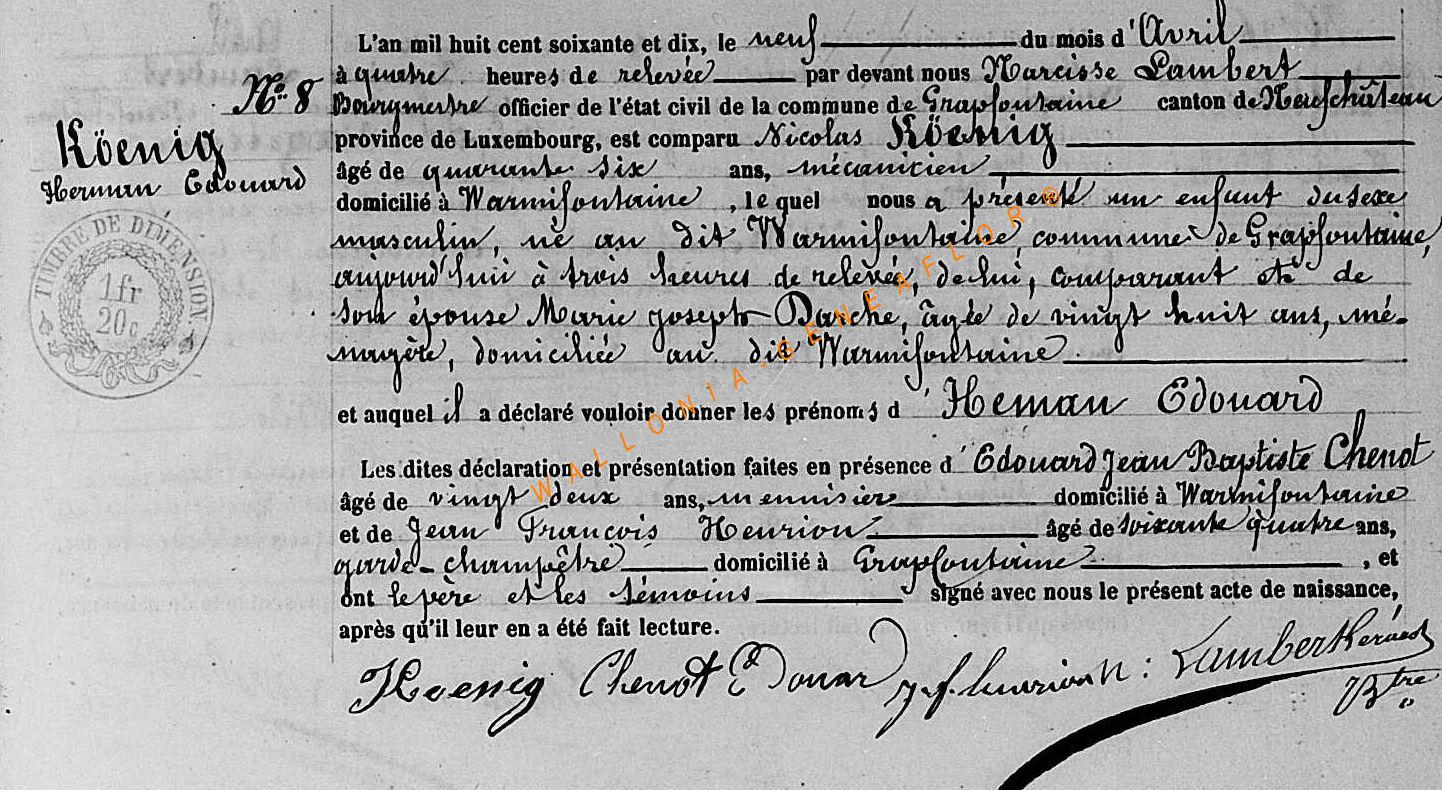 L'an mil huit cent soixante et dix, le neuf du mois d'Avril
à quatre heures de relevée par devant nous Narcisse Lambert
N° 8 Bourgmestre officier de l'état civil de la commune de Grapfontaine canton de Neufchâteau
Köenig
Herman Edouard
province de Luxembourg, est comparu Nicolas Köenig
âgé de quarante six ans, mécanicien
domicilié à Warmifontaine, le quel nous a présenté un enfant du sexe
masculin, né au dit Warmifontaine, commune de Grapfontaine,
aujourd'hui à trois heures de relevée, de lui, comparant et de
son épouse Marie Joseph Darche, âgée de vingt huit ans, mé-
nagère, domiciliée au dit Warmifontaine.
et auquel il a déclaré vouloir donner les prénoms d'Heman Edouard
Les dites déclaration et présentation faites en présence d'Edouard Jean Baptiste Chenot
âgé de vingt deux ans, menuisier domicilié à Warmifontaine
et de Jean François Henrion âgé de soixante quatre ans,
garde-champêtre domicilié à Grapfontaine, et
ont le père et les témoins signé avec nous le présent acte de naissance,
après qu'il leur en a été fait lecture.
Hoenig Chenot Edouar J. f. henrion : Lambert Btre
TIMBRE DE DIMENSION
1 fr
20 c
WALLONIA-GENEAFLOR©